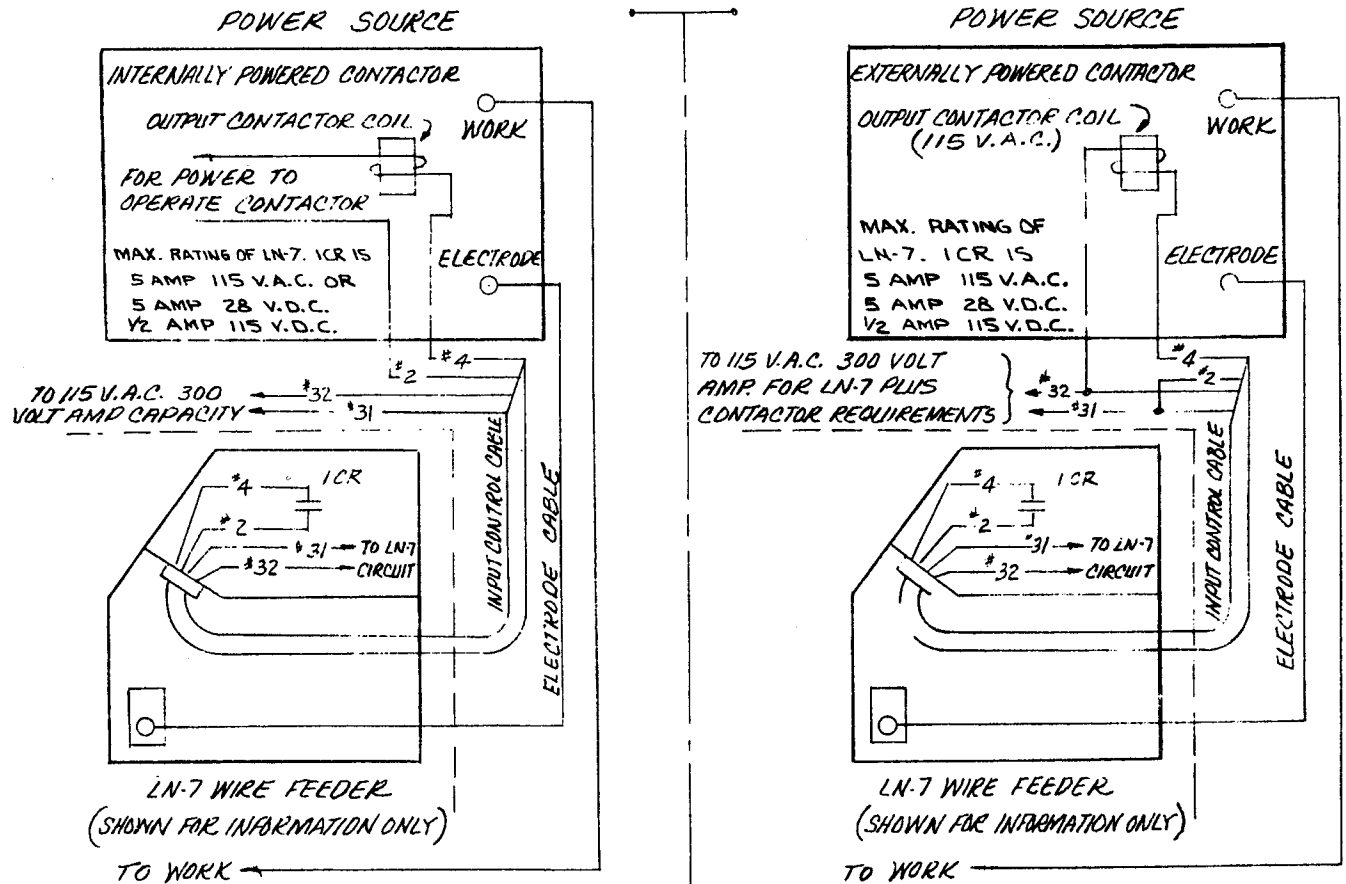 POWER SOURCE
INTERNALLY POWERED CONTACTOR
OUTPUT CONTACTOR COIL
WORK
FOR POWER TO
OPERATE CONTACTOR
MAX. RATING OF LN-7. ICR IS
5 AMP 115 V.A.C. OR
5 AMP 28 V.D.C.
1/2 AMP 115 V.D.C.
ELECTRODE
#4
#2
#32
#31
TO 115 V.A.C. 300
VOLT AMP CAPACITY
INPUT CONTROL CABLE
ELECTRODE CABLE
#4
1CR
#2
#31 TO LN-7
#32 CIRCUIT
LN-7 WIRE FEEDER
(SHOWN FOR INFORMATION ONLY)
TO WORK
POWER SOURCE
EXTERNALLY POWERED CONTACTOR
OUTPUT CONTACTOR COIL
(115 V.A.C.)
WORK
MAX. RATING OF
LN-7. ICR IS
5 AMP 115 V.A.C.
5 AMP 28 V.D.C.
1/2 AMP 115 V.D.C.
ELECTRODE
#4
#2
#32
#31
TO 115 V.A.C. 300 VOLT
AMP. FOR LN-7 PLUS
CONTACTOR REQUIREMENTS
INPUT CONTROL CABLE
ELECTRODE CABLE
#4
1CR
#2
#31 TO LN-7
#32 CIRCUIT
LN-7 WIRE FEEDER
(SHOWN FOR INFORMATION ONLY)
TO WORK